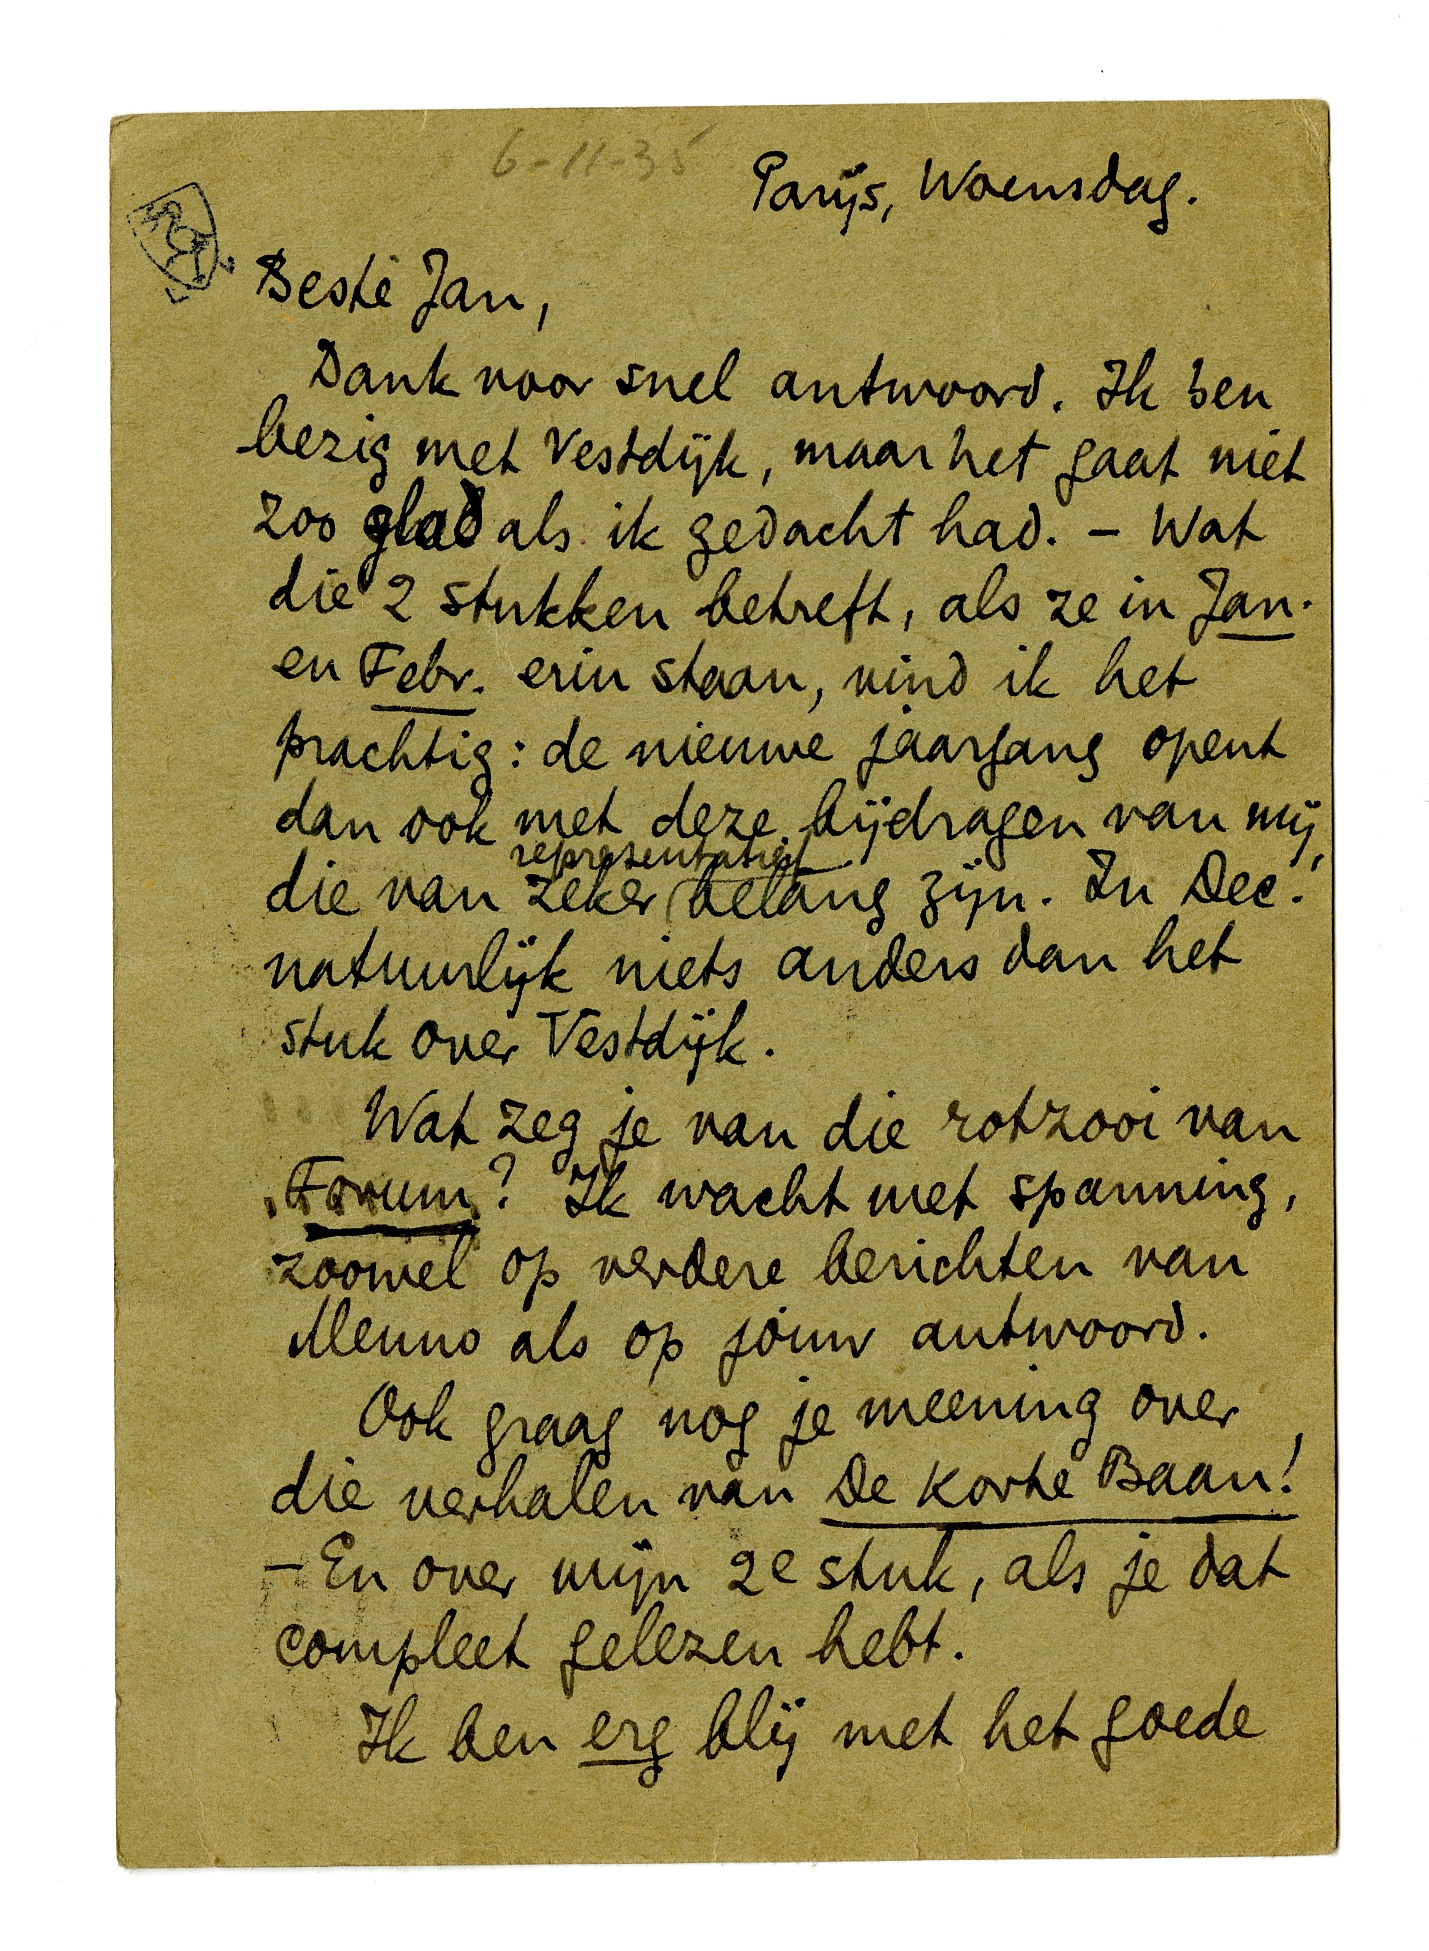 6-11-35
Parijs, Woensdag.
Beste Jan,
Dank voor snel antwoord. Ik ben
bezig met Vestdijk, maar het gaat niet
zoo glad als ik gedacht had. – Wat
die 2 stukken betreft, als ze in Jan.
en Febr. erin staan, vind ik het
prachtig: de nieuwe jaargang opent
dan ook met deze bijdragen van mij,
representatief
die van zeker belang zijn. In Dec.
natuurlijk niets anders dan het
stuk over Vestdijk.
Wat zeg je van die rotzooi van
Forum? Ik wacht met spanning,
zoowel op verdere berichten van
Menno als op jouw antwoord.
Ook graag nog je meening over
die verhalen van De Korte Baan!
– En over mijn 2e stuk, als je dat
compleet gelezen hebt.
Ik ben erg blij met het goede